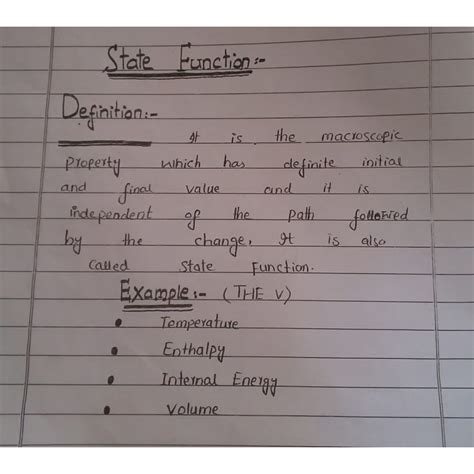 State Function:-
Definition:-
It is the macroscopic
property which has definite initial
and final value and it is
independent of the path followed
by the change, It is also
Called State Function.
Example:- (THE V)
• Temperature
• Enthalpy
• Internal Energy
• Volume